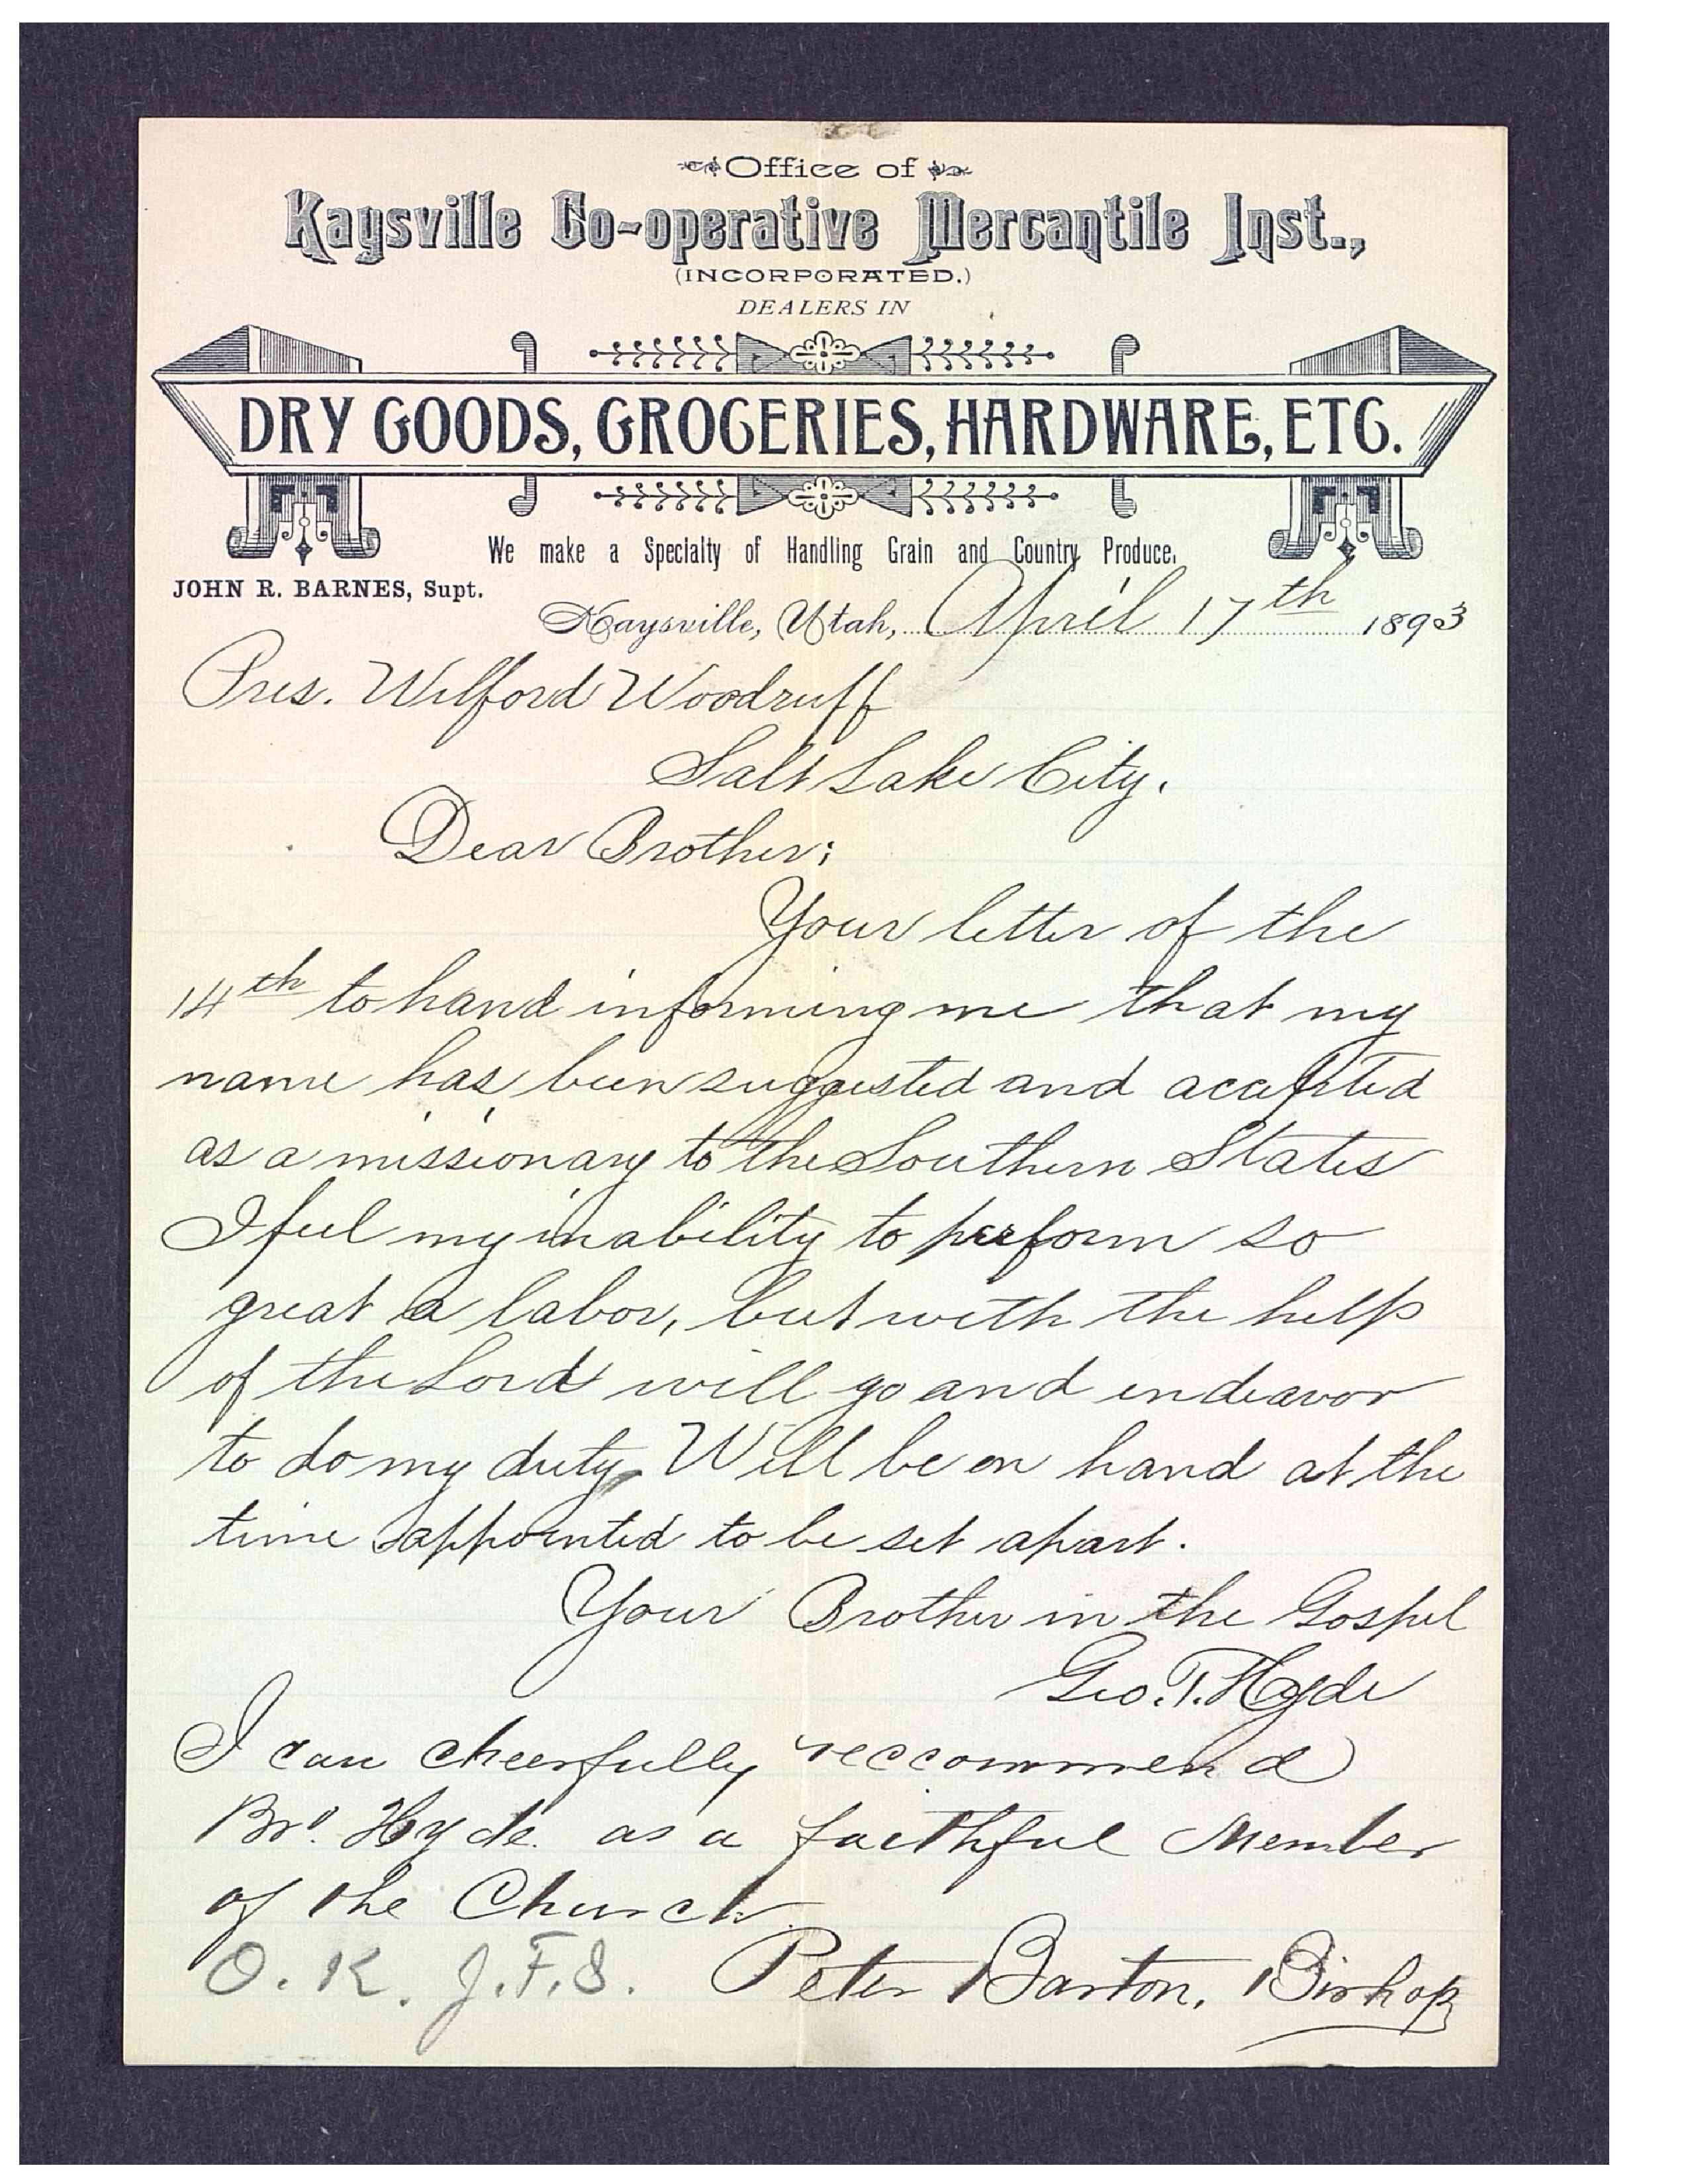 Office of
Kaysville Co-operative Mercantile Inst.,
(INCORPORATED.)
DEALERS IN
DRY GOODS, GROCERIES, HARDWARE, ETC.
We make a Specialty of Handling Grain and Country Produce.
JOHN R. BARNES, Supt.
Kaysville, Utah, April 17th 1893
Pres. Wilford Woodruff
Salt Lake City.
Dear Brother;
Your letter of the
14th to hand informing me that my
name has been suggested and acepted
as a missionary to the Southern States
I feel my inability to perform so
great a labor, but with the help
of the Lord will go and endeavor
to do my duty. Will be on hand at the
time appointed to be set apart.
Your Brother in the Gospel
Geo. T. Hyde
I can cheerfully reccommend
Bro. Hyde as a faithful Member
of the Church.
O. K. J. F. S. Peter Barton, Bishop